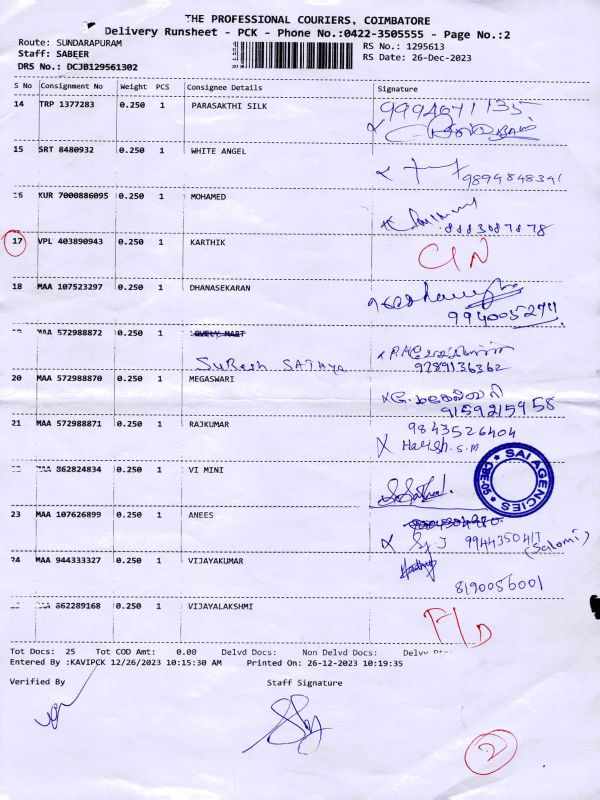 THE PROFESSIONAL COURIERS, COIMBATORE
Delivery Runsheet - PCK - Phone No.:0422-3505555 - Page No.:2
Route: SUNDARAPURAM
RS No.: 1295613
Staff: SABEER
RS Date: 26-Dec-2023
DRS No.: DCJB129561302
S No Consignment No Weight PCS Consignee Details Signature
14 TRP 1377283 0.250 1 PARASAKTHI SILK
15 SRT 8480932 0.250 1 WHITE ANGEL
9894848391
16 KUR 7000886095 0.250 1 MOHAMED
8883087878
17 VPL 403890943 0.250 1 KARTHIK
CIN
18 MAA 107523297 0.250 1 DHANASEKARAN
MAA 572988872 0.250 1 LOVELY MART
SuResh SATHYA
9289136362
20 MAA 572988870 0.250 1 MEGASWARI
9159215958
21 MAA 572988871 0.250 1 RAJKUMAR
9843526404
Harish. S.M
SAI AGENCIES
MAA 362824834 0.250 1 VI MINI
23 MAA 107626899 0.250 1 ANEES
9944350417
(Salomi)
24 MAA 944333327 0.250 1 VIJAYAKUMAR
8190056001
MAA 362289168 0.250 1 VIJAYALAKSHMI
Tot Docs: 25 Tot COD Amt: 0.00 Delvd Docs: Non Delvd Docs:
Entered By :KAVIPCK 12/26/2023 10:15:30 AM Printed On: 26-12-2023 10:19:35
Verified By Staff Signature
2